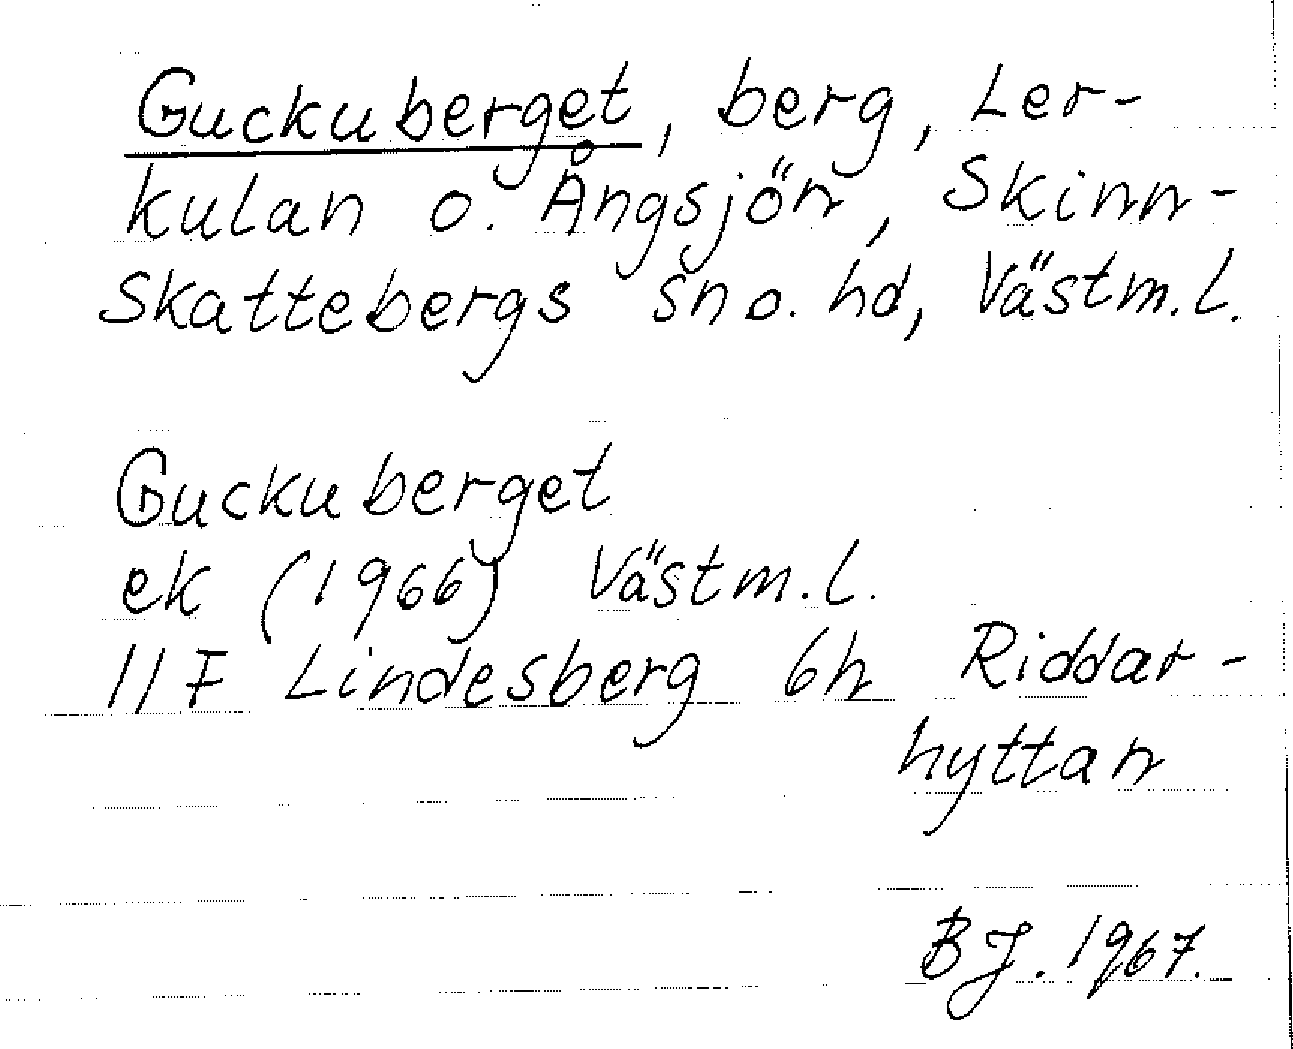 Guckuberget, berg, Ler-
kulan o. Ångsjön, Skinn-
skattebergs sn o. hd, Västm. l.
Guckuberget
ek (1966) Västm. l.
11F Lindesberg 6h Riddar-
hyttan
BJ. 1967.